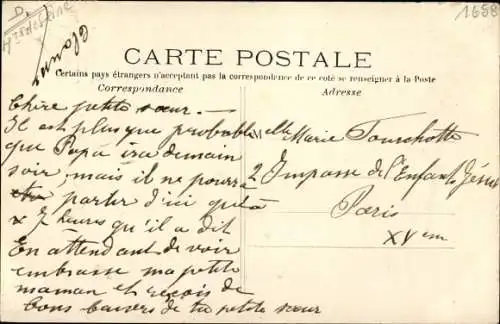 D.
1658
CARTE POSTALE
Certains pays étrangers n'acceptant pas la correspondance de ce coté se renseigner à la Poste
Correspondance
Adresse
Chère petite sœur. -
Il est plus que probable
que Papa ira demain
soir, mais il ne pourra
partir d'ici qu'à
7 heures qu'il a dit
En attendant de voir
embrasse ma petite
maman et reçois de
bons baisers de ta petite sœur
Mlle Marie
2 Impasse de l'Enfant Jésus
Paris
XVem